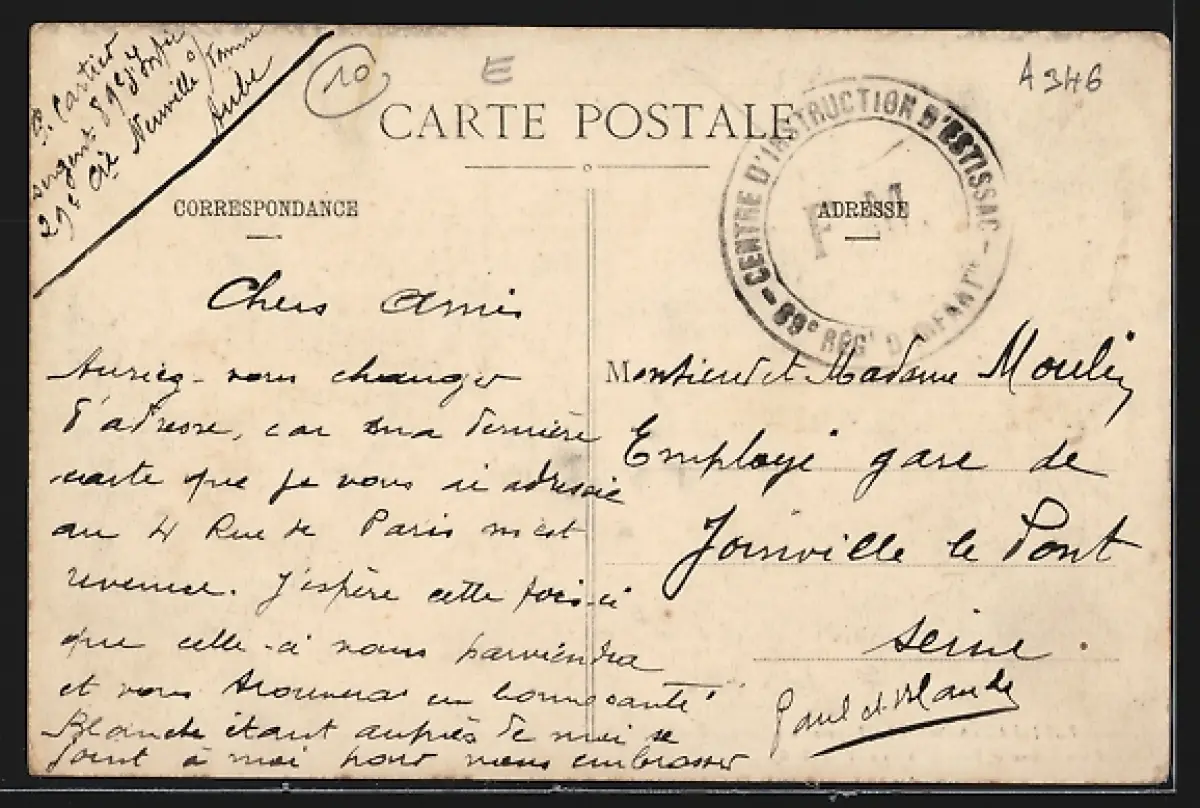 P. Cartier
sergent 89e d'Infie
29e Cie Neuville s/ Vanne
Aube
10
E
A 346
CARTE POSTALE
CENTRE D'INSTRUCTION D'ESTISSAC - 89e RÉGt D'INFANTie -
F.M.
CORRESPONDANCE
ADRESSE
Chers Amis
Auriez-vous changer
d'adresse, car ma dernière
carte que je vous ai adressée
au 4 Rue de Paris m'est
revenue. J'espère cette fois-ci
que celle-ci vous parviendra
et vous trouvera en bonne santé
Blanche étant auprès de moi se
joint à moi pour vous embrasser
Paul et Blanche
Monsieur et Madame Moulin
Employé gare de
Joinville le Pont
Seine.